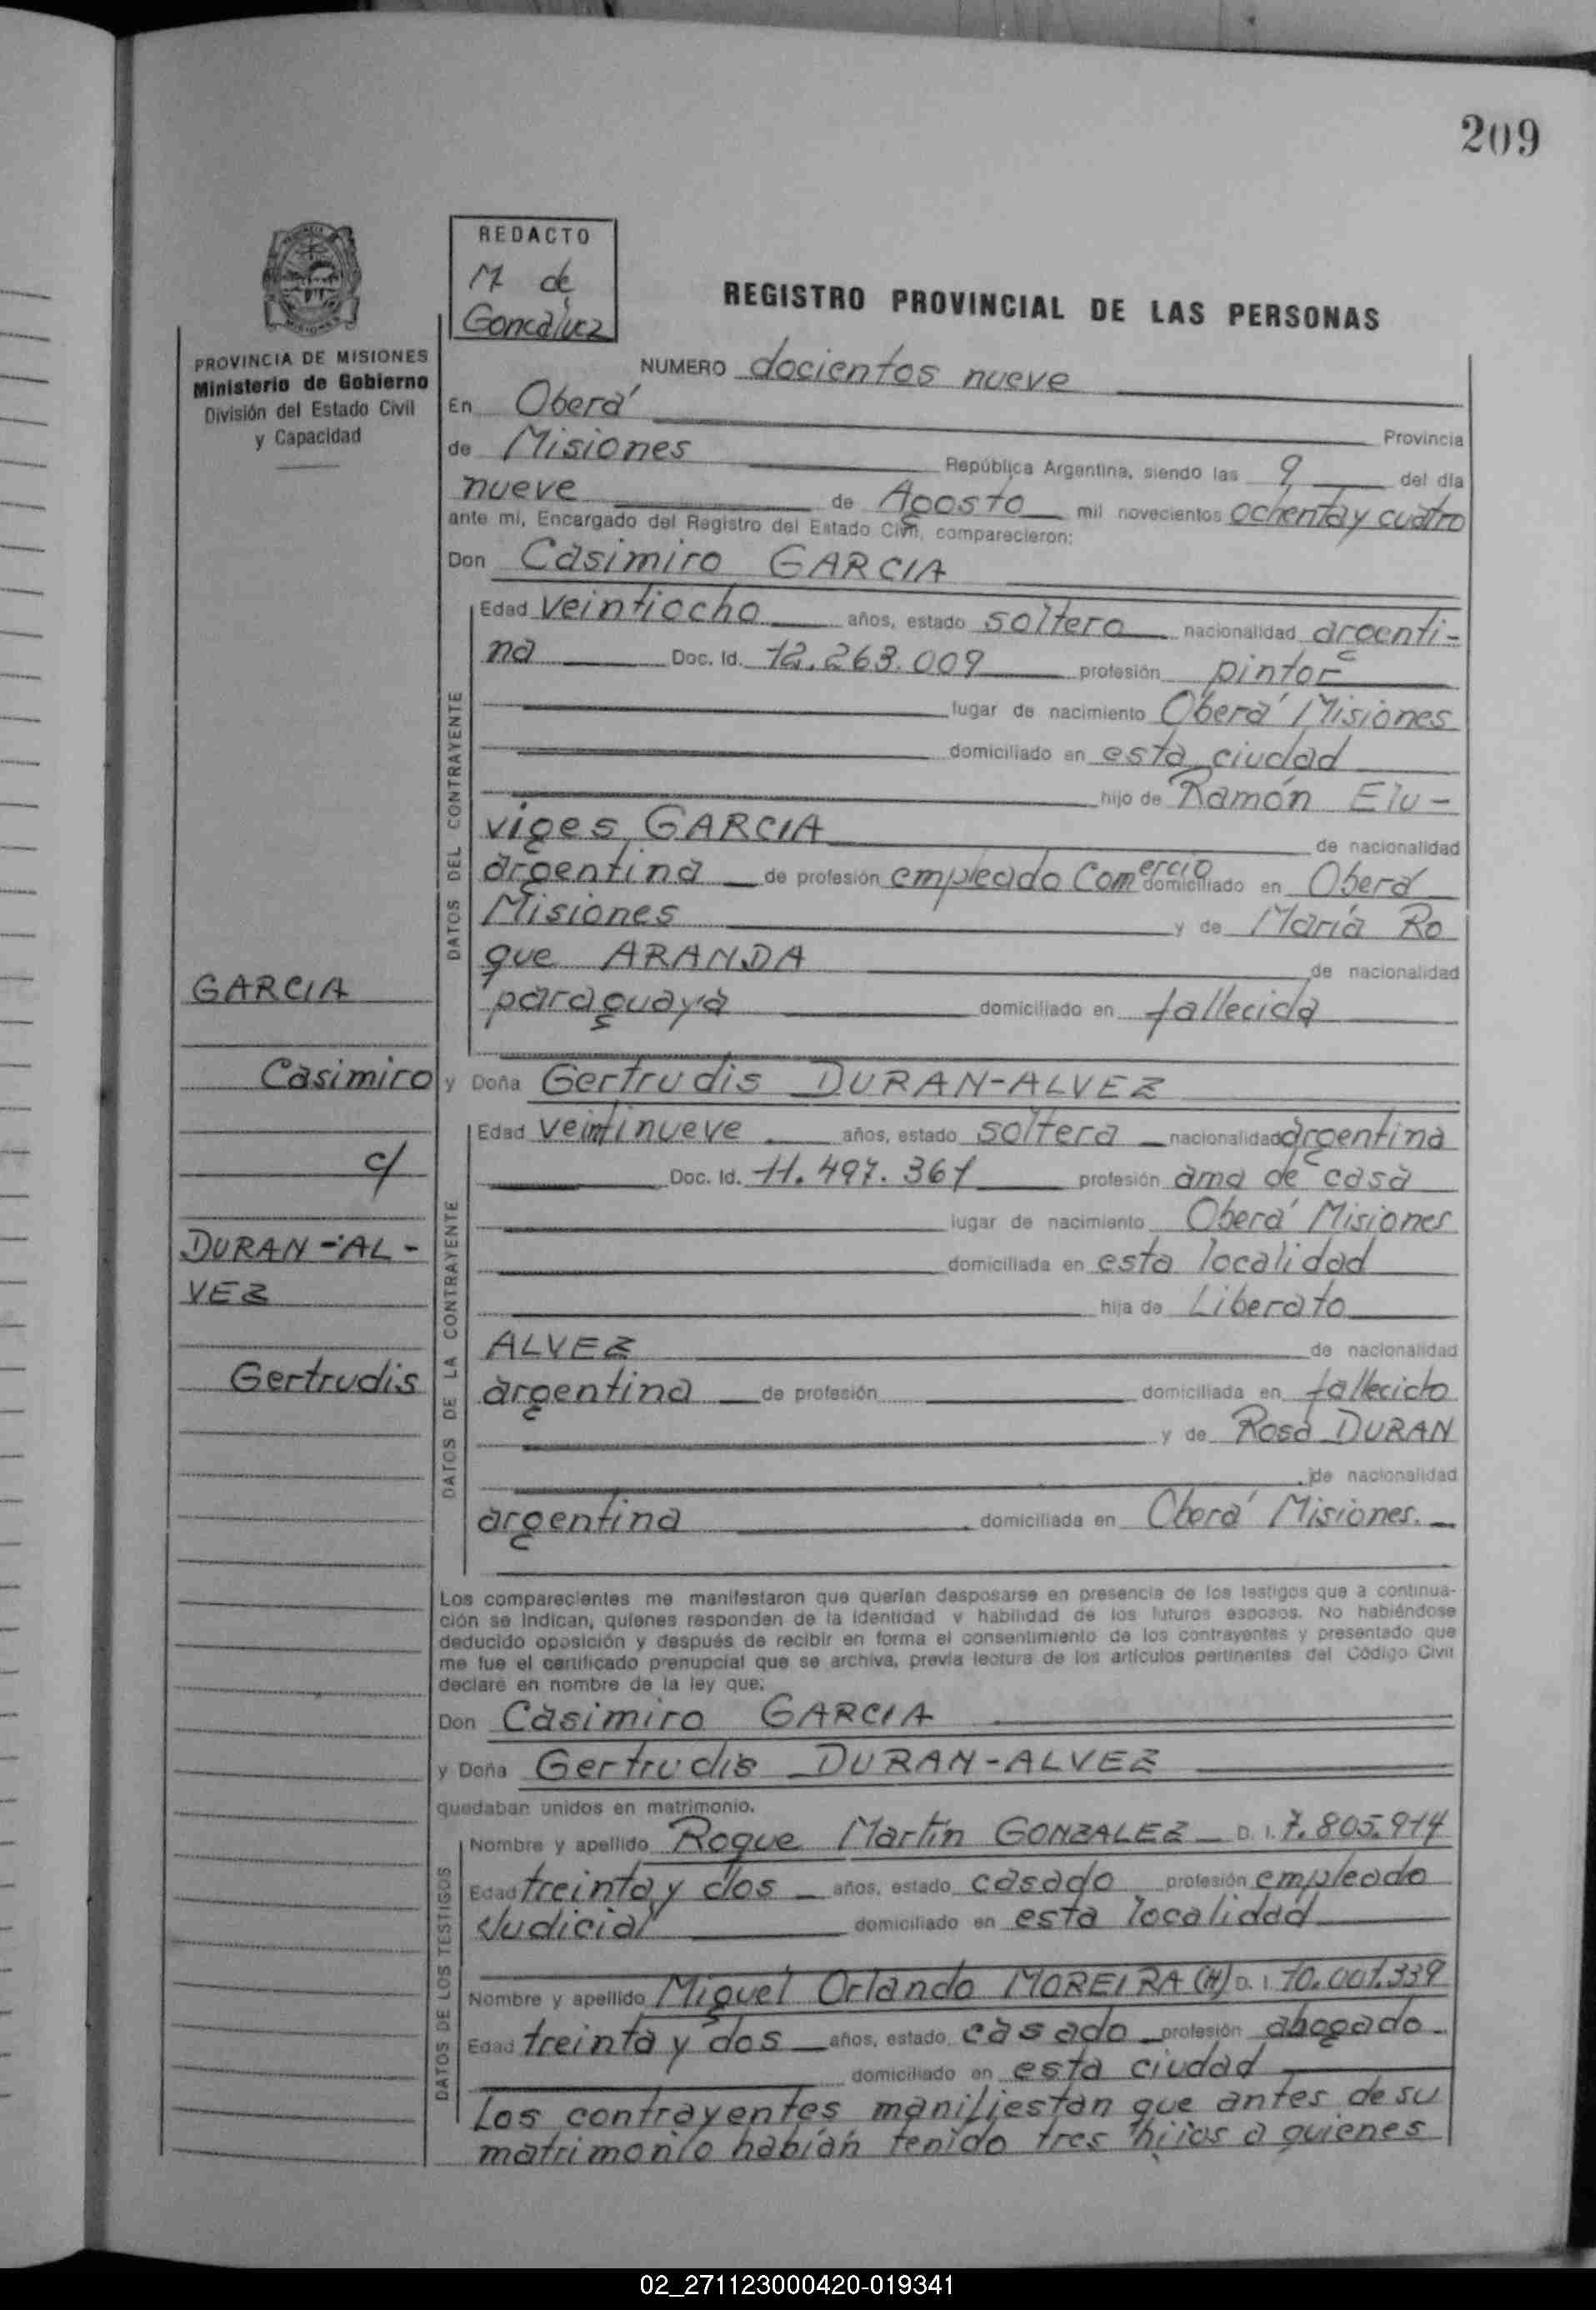 209
REDACTO
M de
Goncalvez
REGISTRO PROVINCIAL DE LAS PERSONAS
PROVINCIA DE MISIONES
Ministerio de Gobierno
División del Estado Civil
y Capacidad
NUMERO docientos nueve
En Oberá
Provincia
de Misiones República Argentina, siendo las 9 del día
nueve de Agosto mil novecientos ochenta y cuatro
ante mi, Encargado del Registro del Estado Civil, comparecieron:
Don Casimiro GARCIA
DATOS DEL CONTRAYENTE
Edad veintiocho años, estado soltero nacionalidad argenti-
na Doc. Id. 12.263.009 profesión pintor
lugar de nacimiento Oberá Misiones
domiciliado en esta ciudad
hijo de Ramón Elu-
viges GARCIA de nacionalidad
argentina de profesión empleado Comercio domiciliado en Oberá
Misiones y de María Ro
que ARANDA de nacionalidad
paraguaya domiciliado en fallecida
GARCIA
Casimiro
c/
DURAN-AL-
VEZ
Gertrudis
y Doña Gertrudis DURAN-ALVEZ
DATOS DE LA CONTRAYENTE
Edad veintinueve años, estado soltera nacionalidad argentina
Doc. Id. 11.497.361 profesión ama de casa
lugar de nacimiento Oberá Misiones
domiciliada en esta localidad
hija de Liberato
ALVEZ de nacionalidad
argentina de profesión domiciliada en fallecido
y de Rosa DURAN
de nacionalidad
argentina domiciliada en Oberá Misiones.
Los comparecientes me manifestaron que querían desposarse en presencia de los testigos que a continua-
ción se indican, quienes responden de la identidad y habilidad de los futuros esposos. No habiéndose
deducido oposición y después de recibir en forma el consentimiento de los contrayentes y presentado que
me fue el certificado prenupcial que se archiva, previa lectura de los artículos pertinentes del Código Civil
declaré en nombre de la ley que:
Don Casimiro GARCIA
y Doña Gertrudis DURAN-ALVEZ
quedaban unidos en matrimonio.
DATOS DE LOS TESTIGOS
Nombre y apellido Roque Martín GONZALEZ D. I. 7.805.914
Edad treinta y dos años, estado casado profesión empleado
Judicial domiciliado en esta localidad
Nombre y apellido Miguel Orlando MOREIRA (H) D. I. 10.001.339
Edad treinta y dos años, estado casado profesión abogado
domiciliado en esta ciudad
Los contrayentes manifiestan que antes de su
matrimonio habían tenido tres hijos a quienes
02_271123000420-019341